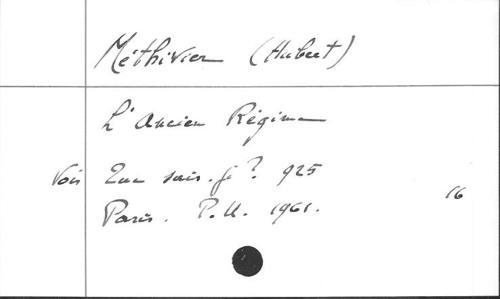 Méthivier (Hubert)
L'Ancien Régime
Voir Que sais-je? 925
Paris. P.U. 1961. 16